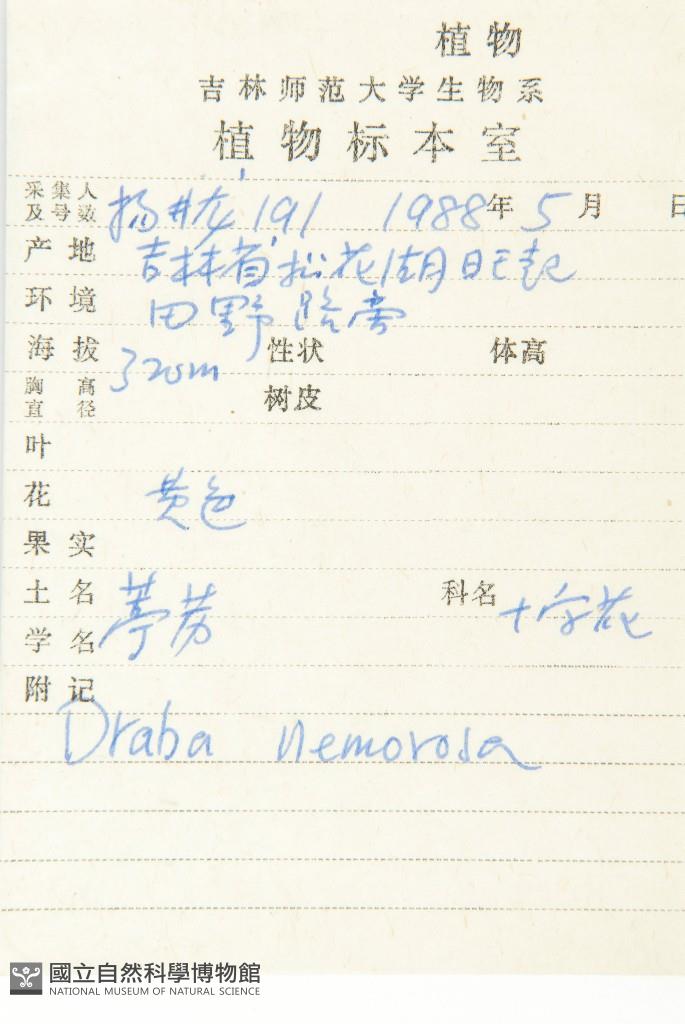 植物
吉林师范大学生物系
植物标本室
采集人及号数 191 1988年5月 日
产地 吉林省松花湖
环境 田野路旁
海拔 320m 性状 体高
胸高直径 树皮
叶
花 黄色
果实
土名 葶苈 科名 十字花
学名
附记
Draba nemorosa
國立自然科學博物館
NATIONAL MUSEUM OF NATURAL SCIENCE